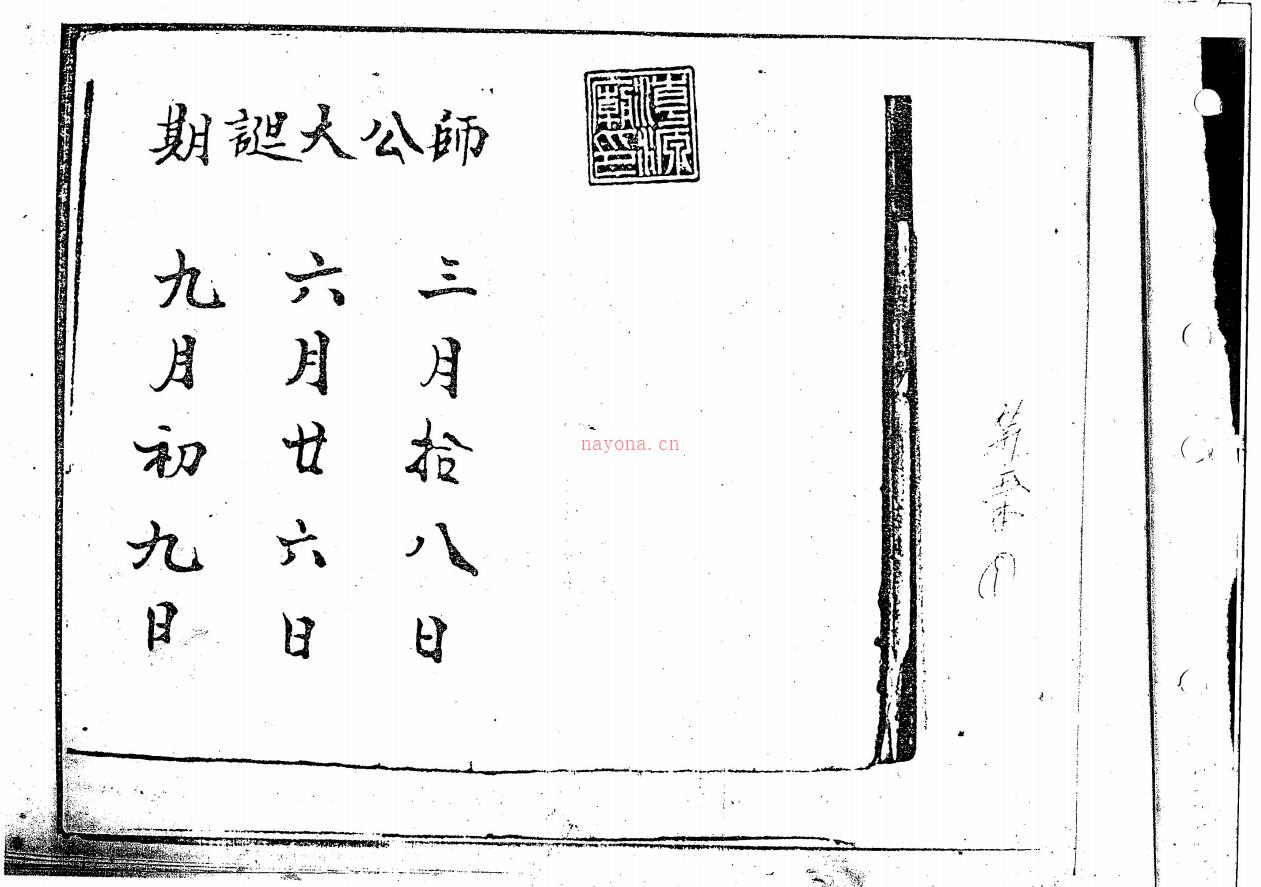 師公大誕期
三月拾八日
六月廿六日
九月初九日
nayona.cn